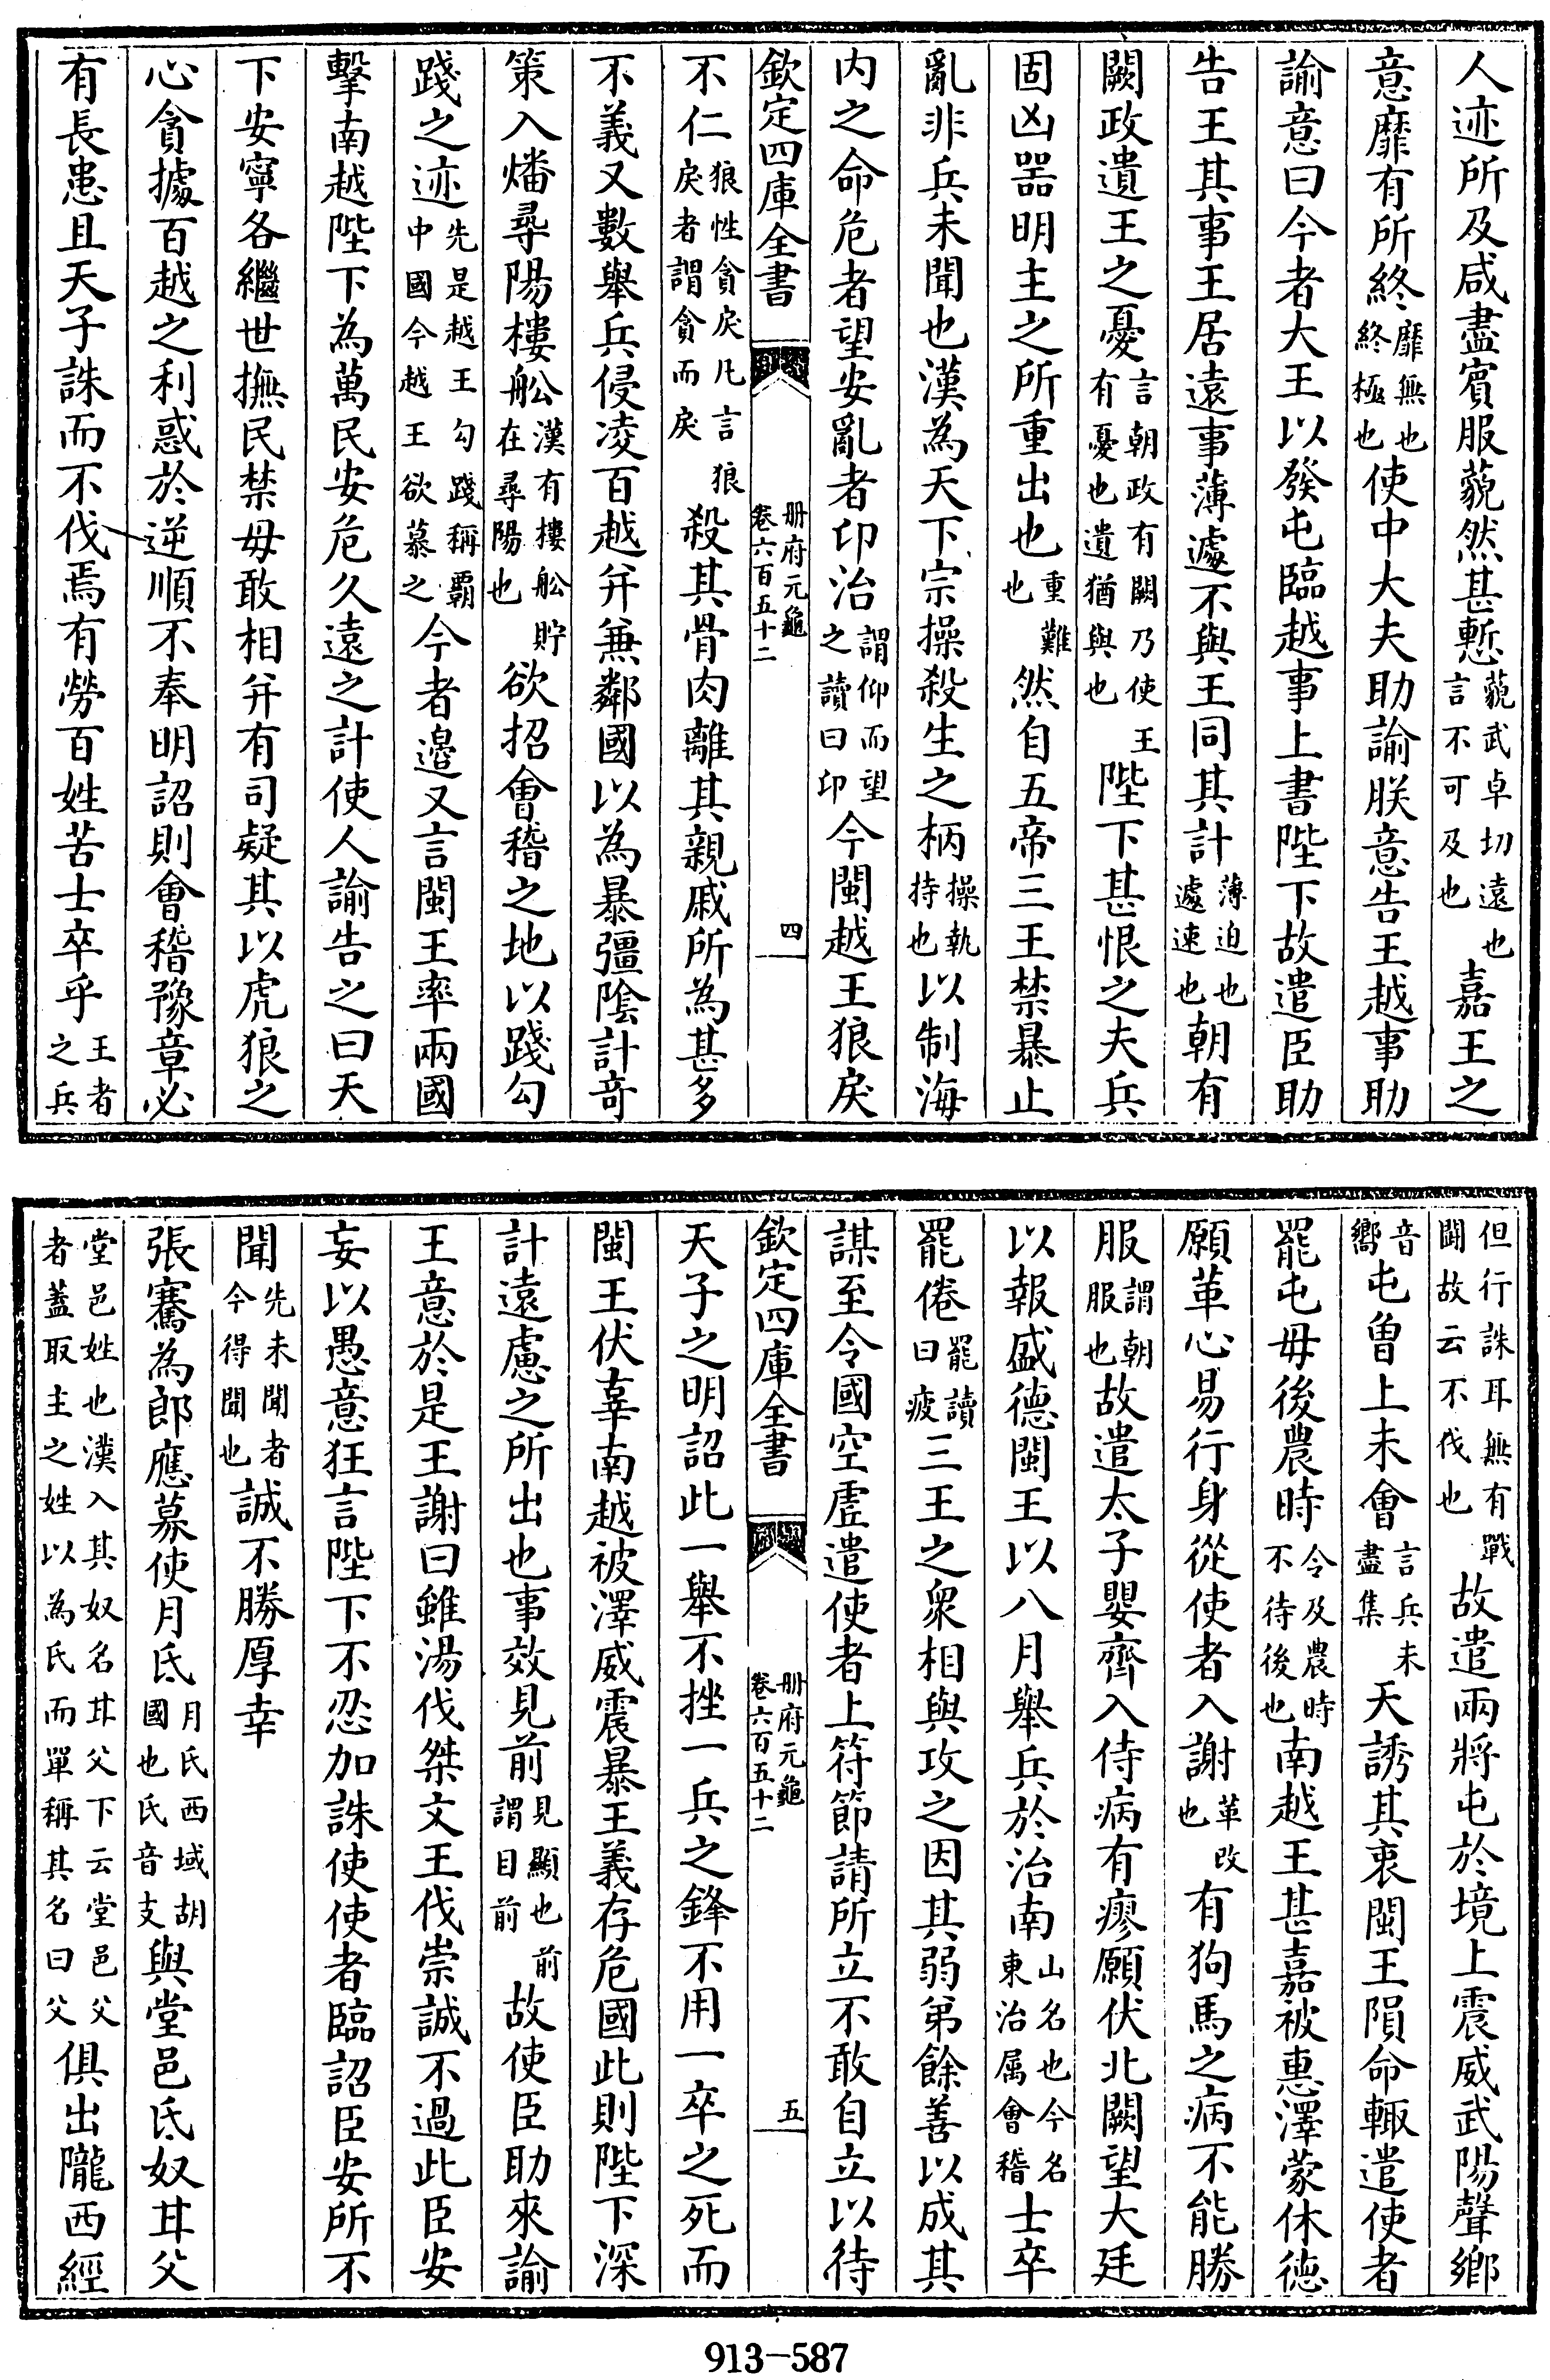 人迹所及咸盡賓服藐然甚慙藐武卓切遠也言不可及也嘉王之
意靡有所終靡無也終極也使中大夫助諭朕意告王越事助
諭意曰今者大王以發屯臨越事上書陛下故遣臣助
告王其事王居遠事薄遽不與王同其計薄迫也遽速也朝有
闕政遺王之憂言朝政有闕乃使王有憂也遺猶與也陛下甚恨之夫兵
固凶噐明主之所重出也重難也然自五帝三王禁暴止
亂非兵未聞也漢為天下宗操殺生之柄操執持也以制海
内之命危者望安亂者卬治謂仰而望之讀曰卬今閩越王狼戾
欽定四庫全書 冊府元龜卷六百五十二 四
不仁狼性貪戾凡言狼戾者謂貪而戾殺其骨肉離其親戚所為甚多
不義又數舉兵侵凌百越并兼鄰國以為暴彊隂計竒
策入燔尋陽樓舩漢有樓舩貯在尋陽也欲招會稽之地以踐勾
踐之迹先是越王勾踐稱霸中國今越王欲慕之今者邉又言閩王率兩國
擊南越陛下為萬民安危久逺之計使人諭告之曰天
下安寧各繼世撫民禁毋敢相并有司疑其以虎狼之
心貪據百越之利惑於逆順不奉明詔則會稽豫章必
有長患且天子誅而不伐焉有勞百姓苦士卒乎王者之兵
但行誅耳無有戰鬬故云不伐也故遣兩將屯於境上震威武陽聲鄉
音嚮屯曽上未會言兵未盡集天誘其衷閩王隕命輙遣使者
罷屯毋後農時令及農時不待後也南越王甚嘉被惠澤蒙休德
願革心易行身從使者入謝革改也有狗馬之病不能勝
服謂朝服也故遣太子嬰齊入侍病有瘳願伏北闕望大廷
以報盛德閩王以八月舉兵於治南山名也今名東治屬會稽士卒
罷倦罷讀曰疲三王之衆相與攻之因其弱弟餘善以成其
謀至令國空虚遣使者上符節請所立不敢自立以待
欽定四庫全書 冊府元龜卷六百五十二 五
天子之明詔此一舉不挫一兵之鋒不用一卒之死而
閩王伏辜南越被澤威震暴王義存危國此則陛下深
計遠慮之所出也事效見前見顯也前謂目前故使臣助來諭
王意於是王謝曰雖湯伐桀文王伐崇誠不過此臣安
妄以愚意狂言陛下不忍加誅使使者臨詔臣安所不
聞先未聞者今得聞也誠不勝厚幸
張騫為郎應募使月氏月氏西域胡國也氏音支與堂邑氏奴甘父
堂邑姓也漢入其奴名甘父下云堂邑父者蓋取主之姓以為氏而單稱其名曰父俱出隴西經
913-587